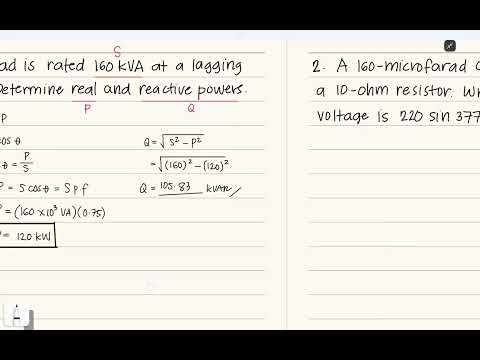 S
ad is rated 160 kVA at a lagging
etermine real and reactive powers.
P Q
P
cos θ
θ = P/S
P = S cos θ = S pf
= (160 x 10³ VA)(0.75)
= 120 kW
Q = √S² - P²
= √(160)² - (120)²
Q = 105.83 kVAR
2. A 160-microfarad c
a 10-ohm resistor. Wr
voltage is 220 sin 377